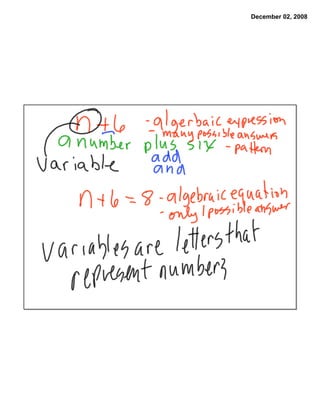 December 02, 2008
n+6 - algerbaic expression
- many possible answers
a number plus six - pattern
variable add
and
n+6=8 - algebraic equation
- only 1 possible answer
Variables are letters that
represent numbers